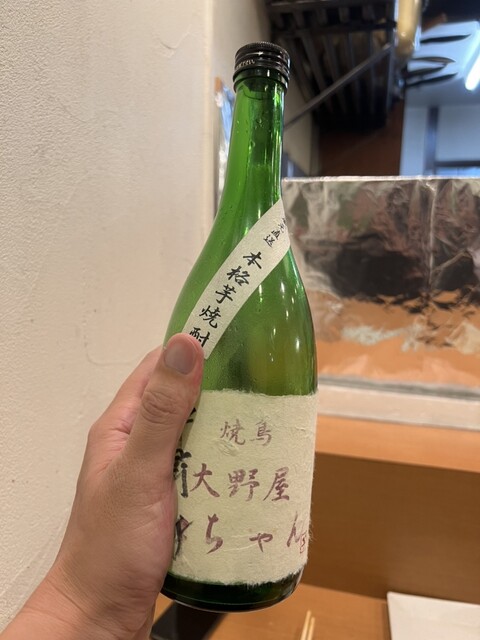 直送
本格芋焼酎
焼鳥
大野屋
ちゃん